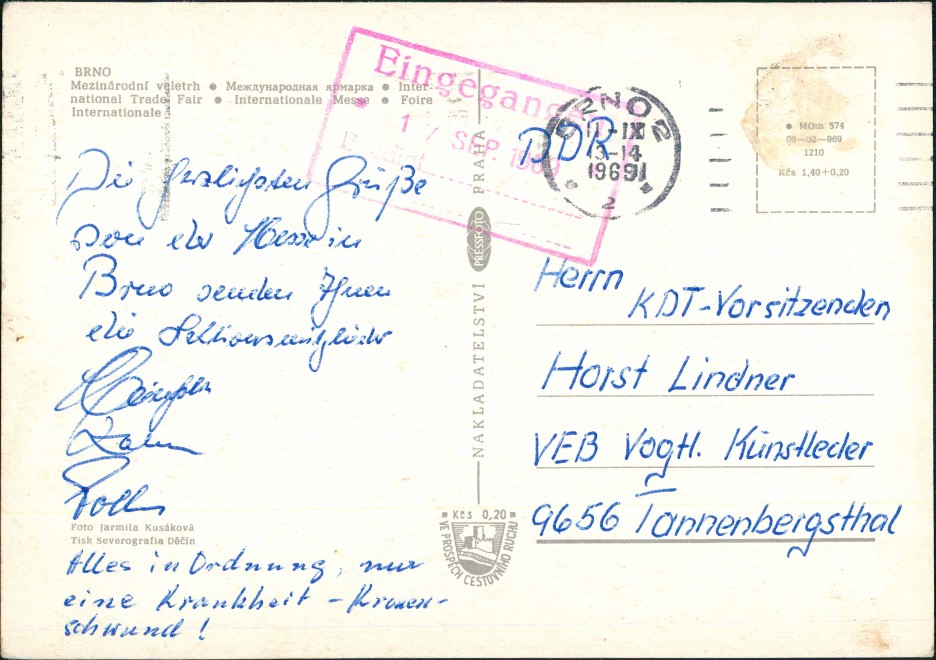 BRNO
Mezinárodní veletrh ● Международная ярмарка ● Inter-
national Trade Fair ● Internationale Messe ● Foire
Internationale
Eingegangen
17 SEP. 196
DDR
BRNO 2
11-IX
13-14
1969
2
● MOm 574
06-32-969
1210
Kčs 1,40+0,20
Die herzlichsten Grüße
von der Messe in
Brno senden Ihnen
die Sektionsmitglieder
Foto Jarmila Kusáková
Tisk Severografia Děčín
Alles in Ordnung, nur
eine Krankheit - Kronen-
schwund!
NAKLADATELSTVÍ PRESSFOTO PRAHA
Kčs 0,20
VE PROSPĚCH CESTOVNÍHO RUCHU
Herrn
KDT-Vorsitzenden
Horst Lindner
VEB Vogtl. Kunstleder
9656 Tannenbergsthal